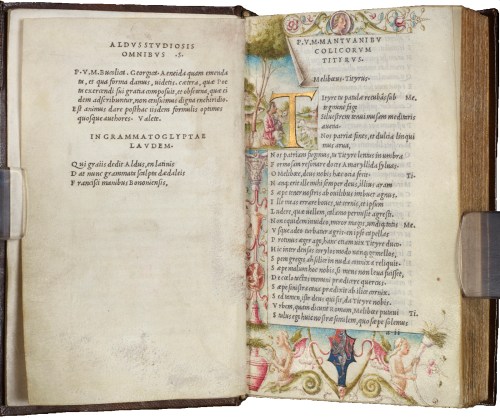 ALDVS STVDIOSIS
OMNIBVS .S.
P. V. M. Bucolica. Georgica. Aeneida quam emenda
ta, et qua forma damus, uidetis. cætera, quæ Poe
ta exercendi sui gratia composuit, et obscœna, quæ ei
dem adscribuntur, non censuimus digna enchiridio.
Est animus dare posthac iisdem formulis optimos
quosque authores. Valete.
IN GRAMMATOGLYPTAE
LAVDEM.
Qui graiis dedit Aldus, en latinis
Dat nunc grammata scalpta dædaleis
Francisci manibus Bononiensis.
P. V. M. MANTVANI BV
COLICORVM
TITYRVS.
Melibœus. Tityrus.
Tityre tu patulæ recubās sub Me.
tegmine fagi
Siluestrem tenui musam meditaris
auena.
Nos patriæ fines, et dulcia lin qui
mus arua,
Nos patriam fugimus, tu Tityre lentus in umbra
Formosam resonare doces Amaryllida syluas.
O Melibœe, deus nobis hæc ocia fecit. Ti.
Nanque erit ille mihi semper deus, illius aram
Sæpe tener nostris ab ouilibus imbuet agnus.
Ille meas errare boues, ut cernis, et ipsum
Ludere, quæ uellem, calamo permisit agresti.
Non equidem inuideo, miror magis, undique totis Me.
Vsque adeo turbatur agris. en ipse capellas
Protinus æger ago, hanc etiam uix Tityre duco.
Hic inter densas corylos modo nanque gemellos,
Spem gregis ah silice in nuda connixa reliquit.
Sæpe malum hoc nobis, si mens non læua fuisset,
De cœlo tactas memini prædicere quercus.
Sæpe sinistra caua prædixit ab ilice cornix.
Sed tamen, iste deus qui sit, da Tityre nobis.
Vrbem, quam dicunt Romam, Melibœe putaui Ti.
Stultus ego huic nostræ similem, quo sæpe solemus